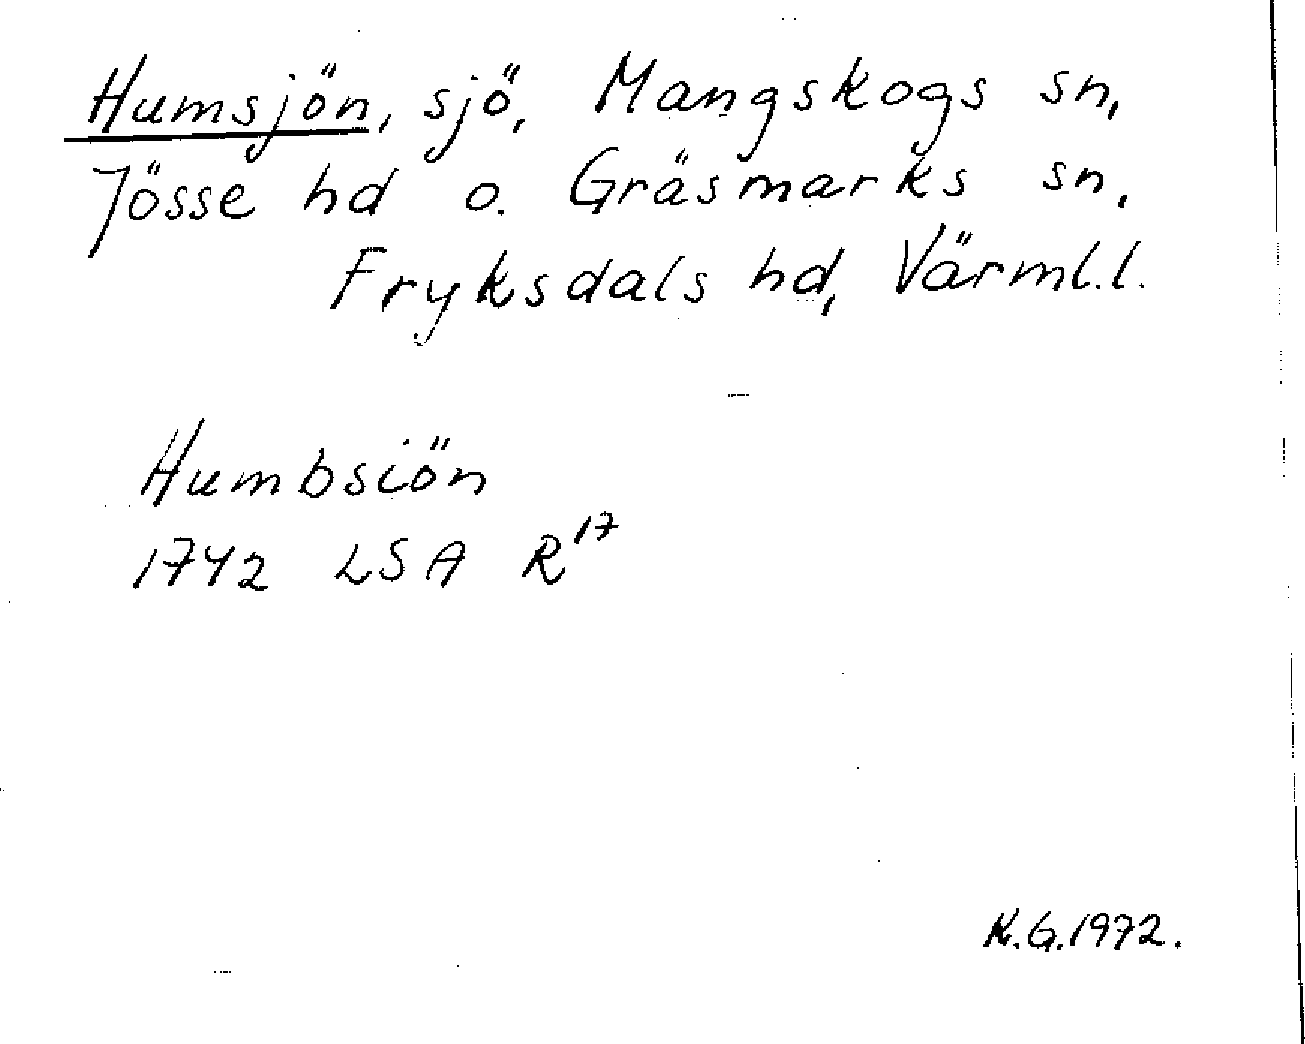 Humsjön, sjö, Mangskogs sn,
Jösse hd o. Gräsmarks sn,
Fryksdals hd, Värml.l.
Humbsiön
1742 LSA R¹⁷
K.G.1972.